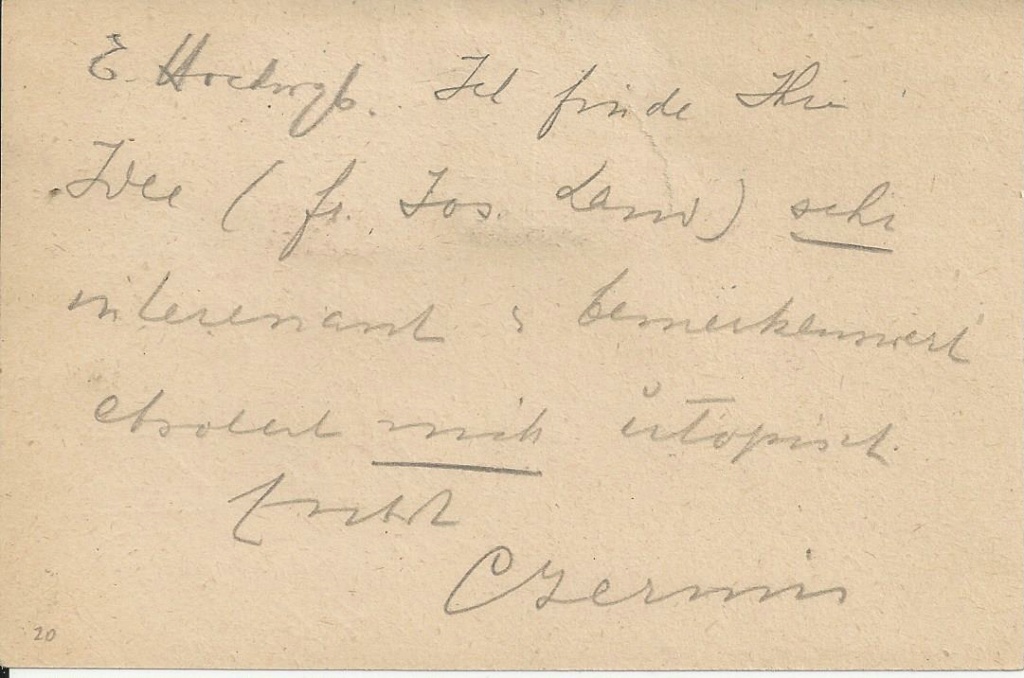 E. Hochwgb. Ich finde Ihre
Idee (fr. Jos. Land) sehr
interessant & bemerkenswert
absolut nicht utopisch.
Ergebst
Czernin
20